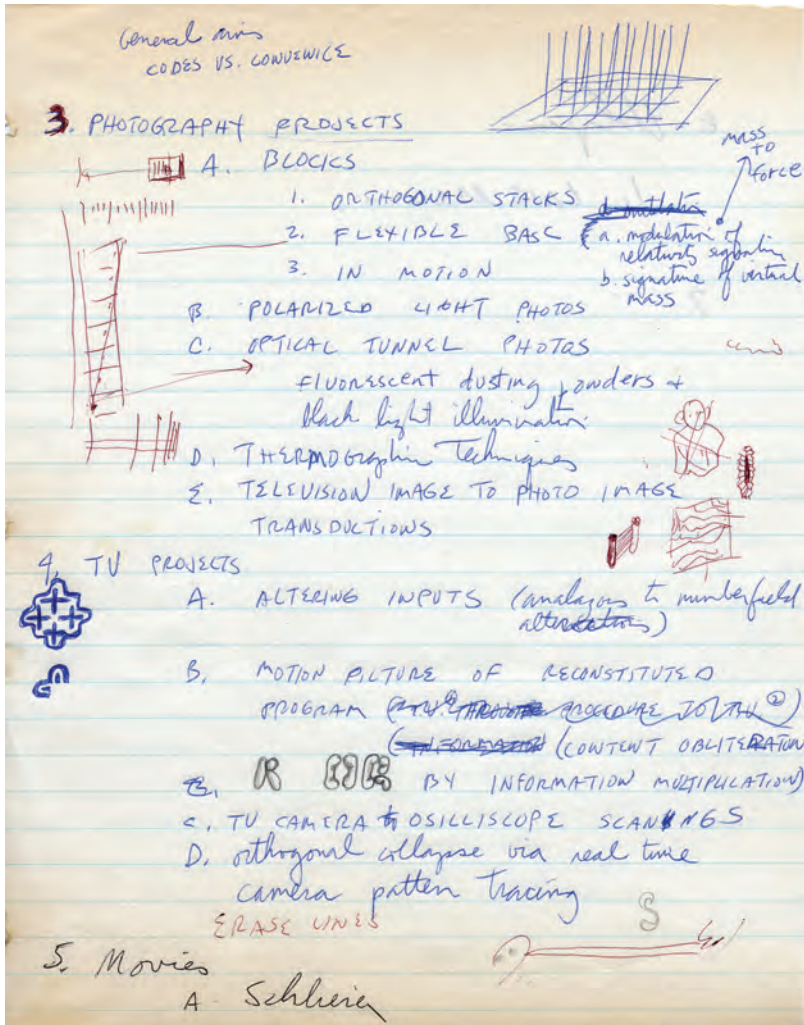 General aims
CODES VS. CONVEWICE
3. PHOTOGRAPHY PROJECTS
MASS
TO
Force
A. BLOCKS
1. ORTHOGONAL STACKS
2. FLEXIBLE BASC (a. modulation of
relativity
3. IN MOTION
b. signature of virtual
mass
B. POLARIZED LIGHT PHOTOS
C. OPTICAL TUNNEL PHOTOS
FLUORESCENT dusting powders +
black light illumination
D. THERMOGraphic Techniques
E. TELEVISION IMAGE TO PHOTO IMAGE
TRANSDUCTIONS
4. TV PROJECTS
A. ALTERING INPUTS (analagous to numberfield
alterations)
B. MOTION PICTURE OF RECONSTITUTED
PROGRAM
PROCEDURE
(INFORMATION (CONTENT OBLITERATION
BY INFORMATION MULTIPULATION)
C. TV CAMERA to OSILLISCOPE SCANNINGS
D. orthogonal collapse via real time
camera patten tracing
S
ERASE LINES
5. Movies
A Schlieren